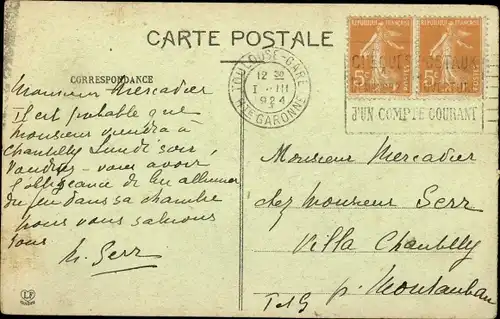 CARTE POSTALE
CORRESPONDANCE
TOULOUSE-GARE
12 30
1 - III
1924
HTE GARONNE
RÉPUBLIQUE FRANÇAISE
5c
RÉPUBLIQUE FRANÇAISE
5c
CHÈQUES POSTAUX
D'UN COMPTE COURANT
Monsieur Mercadier
Il est probable que
monsieur viendra à
Chantelly Lundi soir,
Voudriez-vous avoir
l'obligeance de lui allumer
du feu dans sa chambre
nous vous saluons
tous
M. Serr
Monsieur Mercadier
chez Monsieur Serr
Villa Chantelly
p. Montauban
T et G
LF